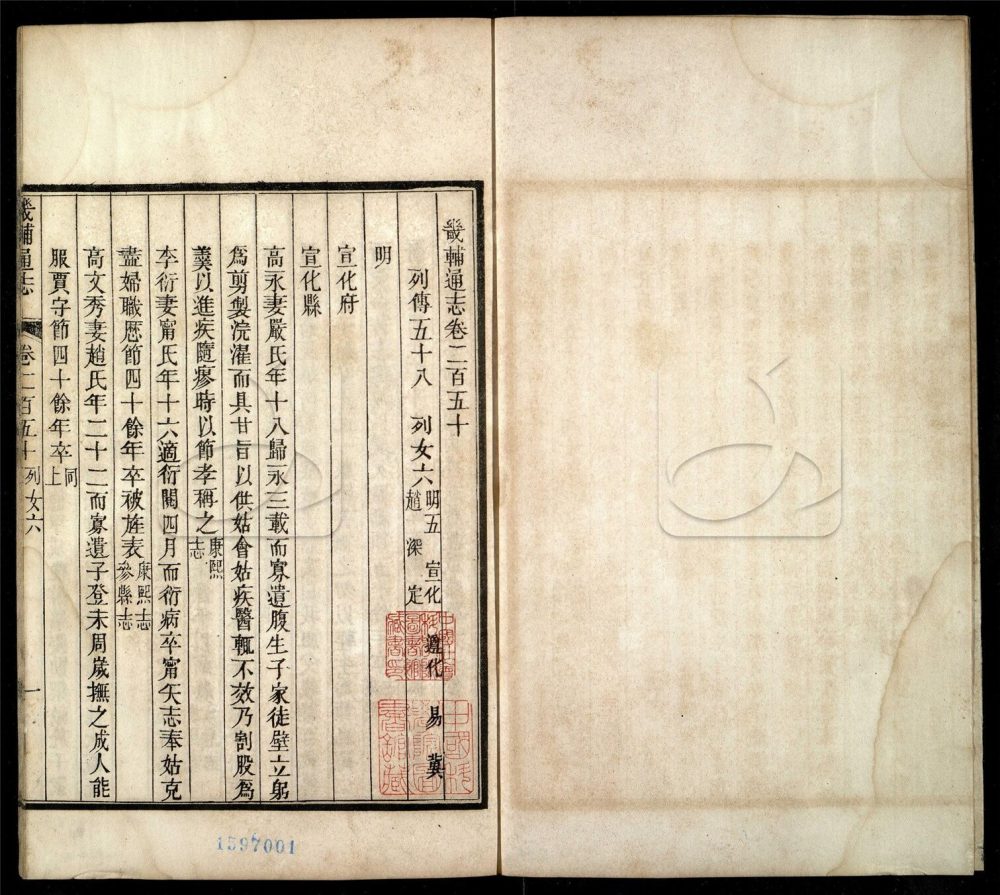 畿輔通志卷二百五十
列傳五十八 列女六 明五 宣化 遵化 易 冀 趙 深 定
明
宣化府
宣化縣
高永妻嚴氏年十八歸永三載而寡遺腹生子家徒壁立躬
爲剪製浣濯而具甘旨以供姑會姑疾醫輒不效乃割股爲
羹以進疾隨瘳時以節孝稱之康熙志
李衍妻甯氏年十六適衍閱四月而衍病卒甯矢志奉姑克
盡婦職歷節四十餘年卒被旌表康熙志參縣志
高文秀妻趙氏年二十二而寡遺子登未周歲撫之成人能
服賈字節四十餘年卒同上
畿輔通志 卷二百五十 列女六 一
1597001